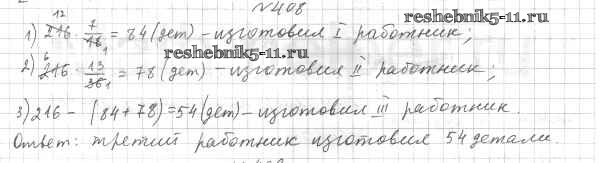 №408
reshebnik5-11.ru
1) 216 · 7/18 = 84 (дет) – изготовил I работник;
reshebnik5-11.ru
2) 216 · 13/36 = 78 (дет) – изготовил II работник;
3) 216 – (84 + 78) = 54 (дет) – изготовил III работник.
Ответ: третий работник изготовил 54 детали.